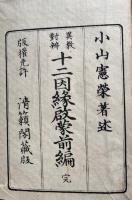 小山憲榮著述
異教
對辨
十二因緣啟蒙前編 完
版權免許
清籟閣藏版